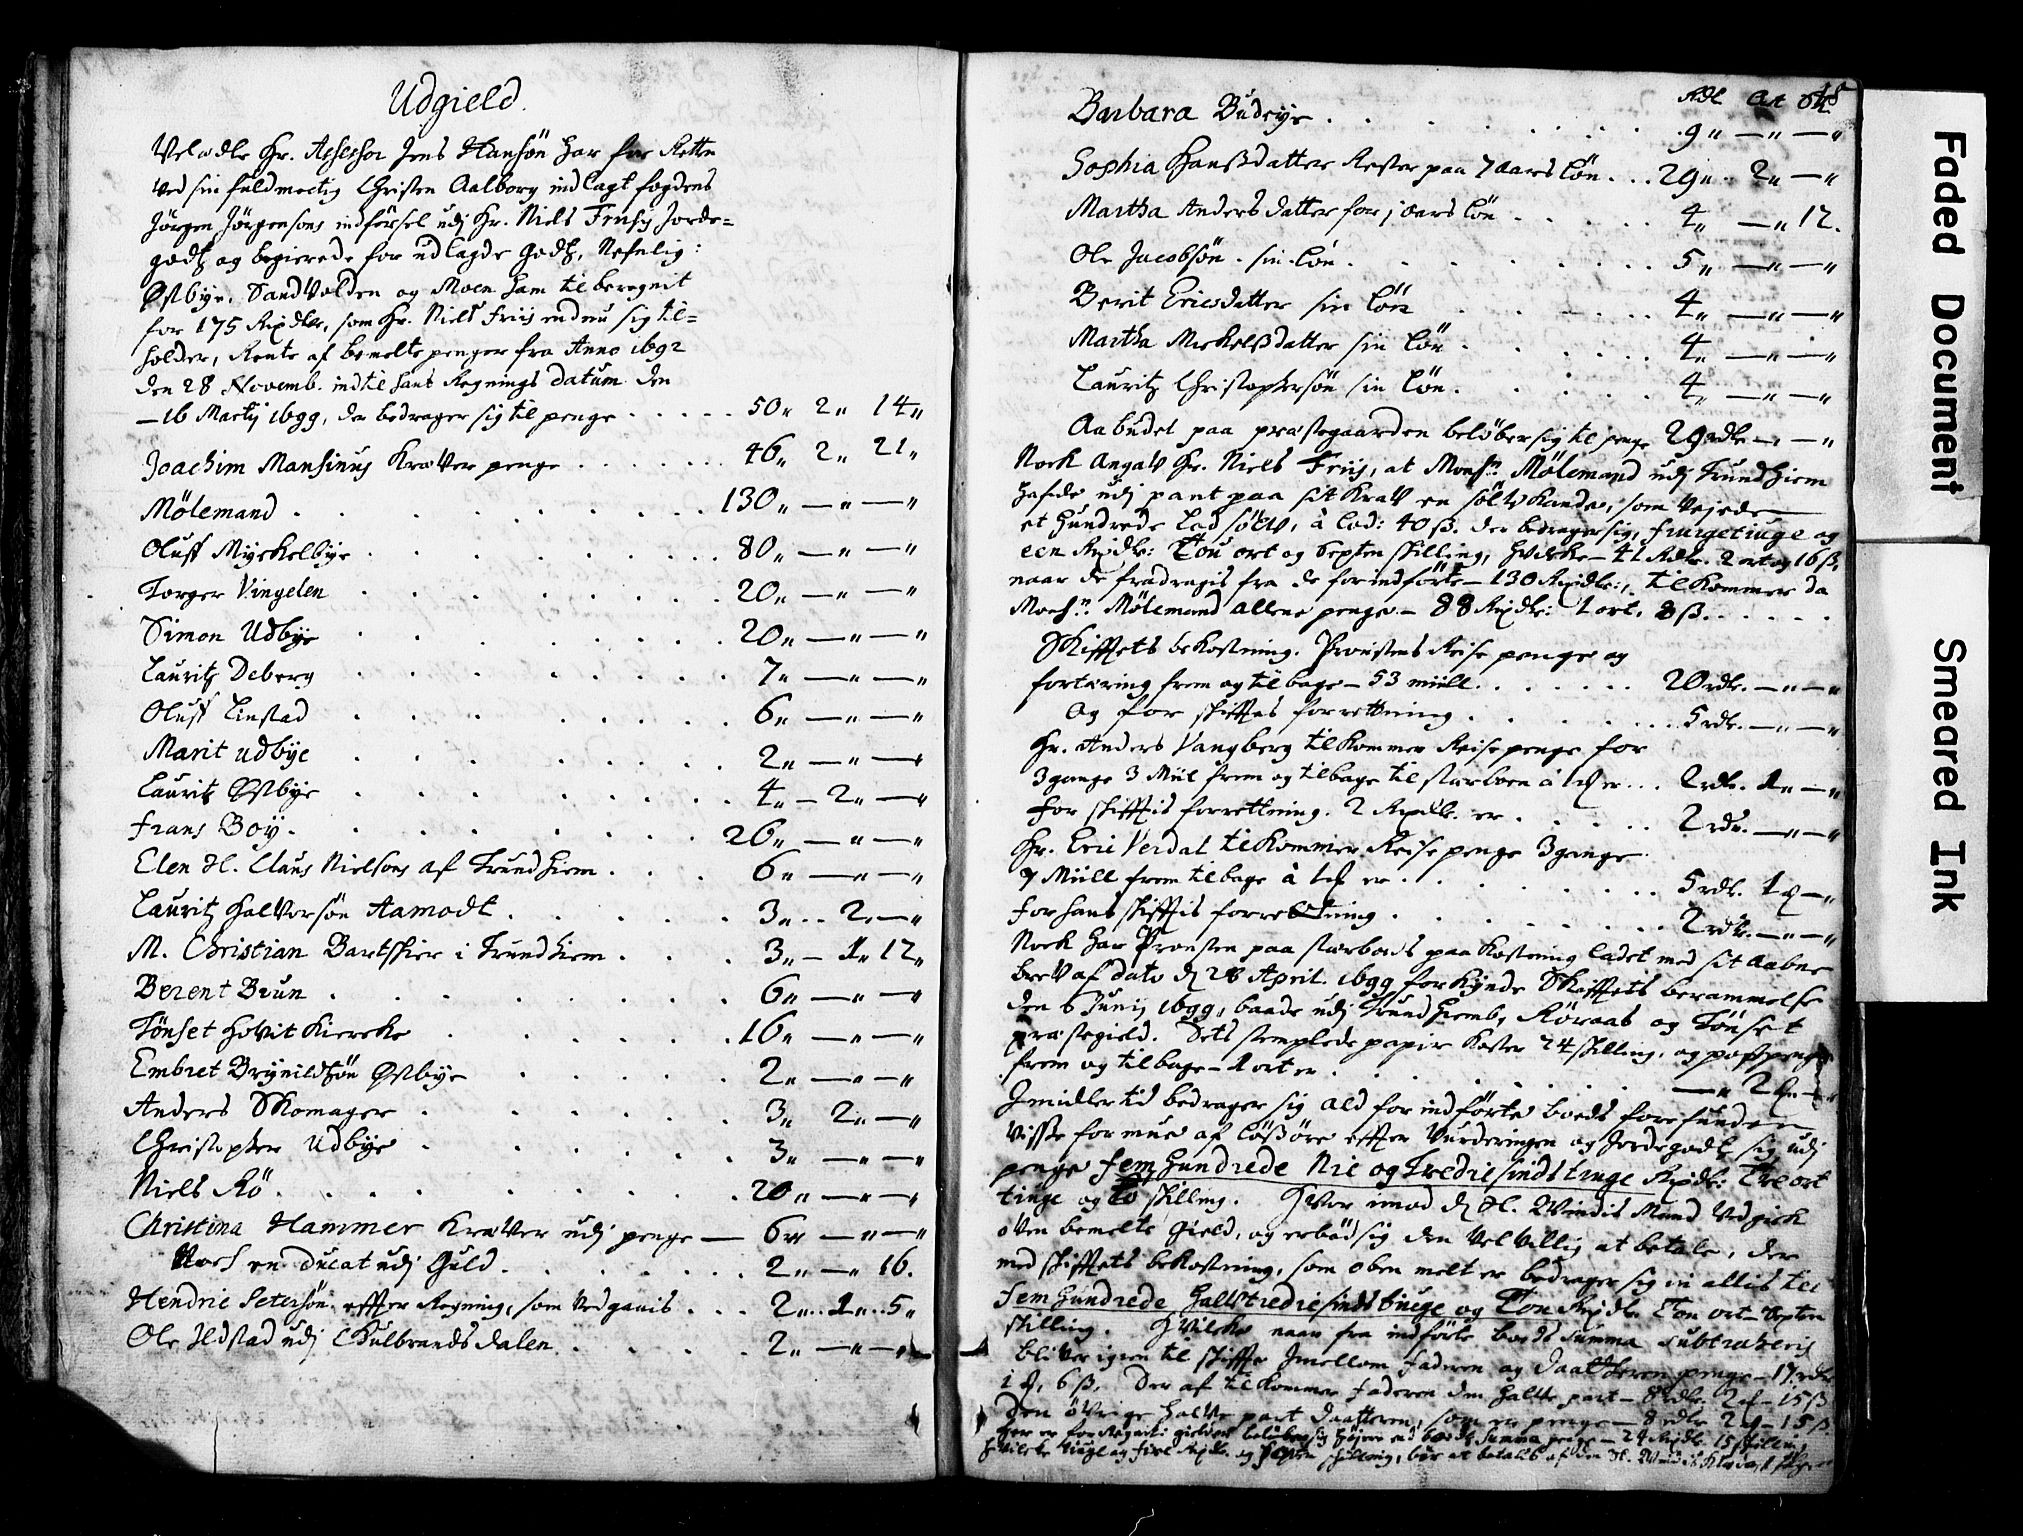 Udgield.
Velædle Hr. Assessor Jens Hansøn har for Retten
ved sin fuldmectig Christen Aalborg indlagt fogdens
Jørgen Jørgensøns indførsel udj Hr. Niels Friisis Jorde=
godtz og begierede for udlagde godtz, Nefnlig:
Østbye, Sandvolden og Moen ham til beregnit
for 175 Rixdlr, som Hr. Niels Friis endnu sig til=
holder, Rente af bemelte penger fra Anno 1692
den 28 Novemb. indtil hans Regnings datum den
— 16 Martij 1699, der bedrager sig til penge . . . . . 50„ 2„ 14„
Joachim Mansinus Kræver penge . . . . . . 46„ 2„ 21„
Mølemand . . . . . . . . . . 130„ —„ —„
Oluff Myskelbye . . . . . . . . . 80„ —„ —„
Torger Vingelen . . . . . . . . 20„ —„ —„
Simon Udbye . . . . . . . . 20„ —„ —„
Lauritz Deberg . . . . . . . . 7„ —„ —„
Oluff Linstad . . . . . . . . 6„ —„ —„
Marit udbye . . . . . . . . 2„ —„ —„
Lauritz Østbye . . . . . . . . 4„ — 2„ —„
Frans Boy . . . . . . . . . 26„ —„ —„
Elen Sl. Claus Nielsøns af Trundhiem . . . . 6„ —„ —„
Lauritz Halvorsøn Aamodt . . . . . . 3„ .. 2„ —„
M. Christian Bartskier i Trundhiem . . . . 3„ — 1„ 12„
Berent Brun . . . . . . . . 6„ —„ —„
Tønset Hovit Kiercke . . . . . . . 16„ —„ —„
Embret Brynildsøn Østbye . . . . . . 2„ —„ —„
Anders Skomager . . . . . . . 3„ 2„ —„
Christopher Udbye . . . . . . . 3„ —„ —„
Niels Rø . . . . . . . . . 20„ —„ —„
Christina Hammer Kræver udj penge — 6„ —„ —„
Noch en Ducat udj Guld . . . . . . . 2„ —„ 16.
Hendric Petersøn effter Regning, som vedgaais . . . 2„ .. 1„ .. 5„
Ole Ildstad udj Gulbrandsdalen . . . . . 2„ —„ —„
Rdl Ort
Barbara Budeye . . . . . . . . . 9„ —„ —„
Sophia Hanßdatter Rester paa 7 aars Løn . . . 29„ . 2„ —„
Martha Andersdatter for j aars Løn . . . . . 4„ —„ 12.
Ole Jacobsøn . sin Løn . . . . . . . . 5„ —„ —„
Berit Ericsdatter sin Løn . . . . . 4„ —„ —„
Martha Mickelßdatter sin Løn . . . . . . 4„ —„ —„
Lauritz Christophersøn sin Løn . . . . . . 4„ —„ —„
Aabudet paa præstegaarden beløber sig til penge 29 rdlr —„ —„
Nock angav Hr. Niels Friis, at Monsr. Mølemand udj Trundhiem
hafde udj pant paa sit Krav en sølv Kande, som vejede
et hundrede Lod sølv, à Lod: 40 ß. der bedrager sig, fiurgetiuge og
een Rixdlr: Tou ort og Septen skilling, hvilke — 41 Rdlr. 2 ort og 16 ß,
naar de fradragis fra de forindførte — 130 Rixdlr:, tilkommer da
Monsr. Mølemand allene penge — 88 Rixdlr: 1 ort. 8 ß . . . . . .
Skifftets bekostning. Proustens Reise penge og
fortæring frem og tilbage — 53 miill . . . . . . 20 rdlr. —„ —„
Og for skifftes forretning . . . . . . . 5 rdlr. —„ —„
Hr. Anders Vangberg tilkommer Reise penge for
3 gange 3 Miil frem og tilbage til stervboen à er . . . 2 rdlr. 1„ —„
For skifftis forretning. 2 Rixdlr. er . . . . . 2 rdlr. —„ —„
Hr. Eric Verdal tilkommer Reise penge 3 gange
7 Miill frem tilbage à er . . . . . . . 5 rdlr. 1 —„
For hans skifftis forretning . . . . . . . 2 rdlr. —„ —„
Nock har Prousten paa stervboens paa Kostning ladet med sit aabne
brev af dato d. 28 April. 1699 forkynde Skifftets berammelse
den 6 Junij 1699, baade udj Trundhiemb, Røraas og Tønset
præstegield. Dets stemplede papir koster 24 skilling, og postpenge
frem og tilbage — 1 ort er . . . . . . . —„ 2 —
Imidlertid bedrager sig ald forindførte boeds forefunden
visse formue af Løßøre effter Vurderingen og Jordegodtz sig udj
penge Femhundrede Nie og Trediesindstiuge Rixdlr: Tre ort
tiuge og To skilling. Hvor imod d. Sl. Qvindis Mand vedgick
oven bemelte Gield, og erbød sig den velvillig at betale, der
med skifftets bekostning, som oben melt er bedrager sig in allis til
Fem hundrede Halvtrediesindstiuge og Tou Rixdlr Tou ort Septen
skilling. Hvilke naar fra indførte boeds summa subtraheris
bliver igien til skiffte Imellom Faderen og Daatteren penge — 17 rdlr
1 , 6 ß. Der af tilkommer Faderen den halve part — 8 rdlr. 2 — 15 ß
Den øvrige halve part daatteren, som er penge — 8 rdlr 2 — 15 ß
Faded Document
Smeared Ink